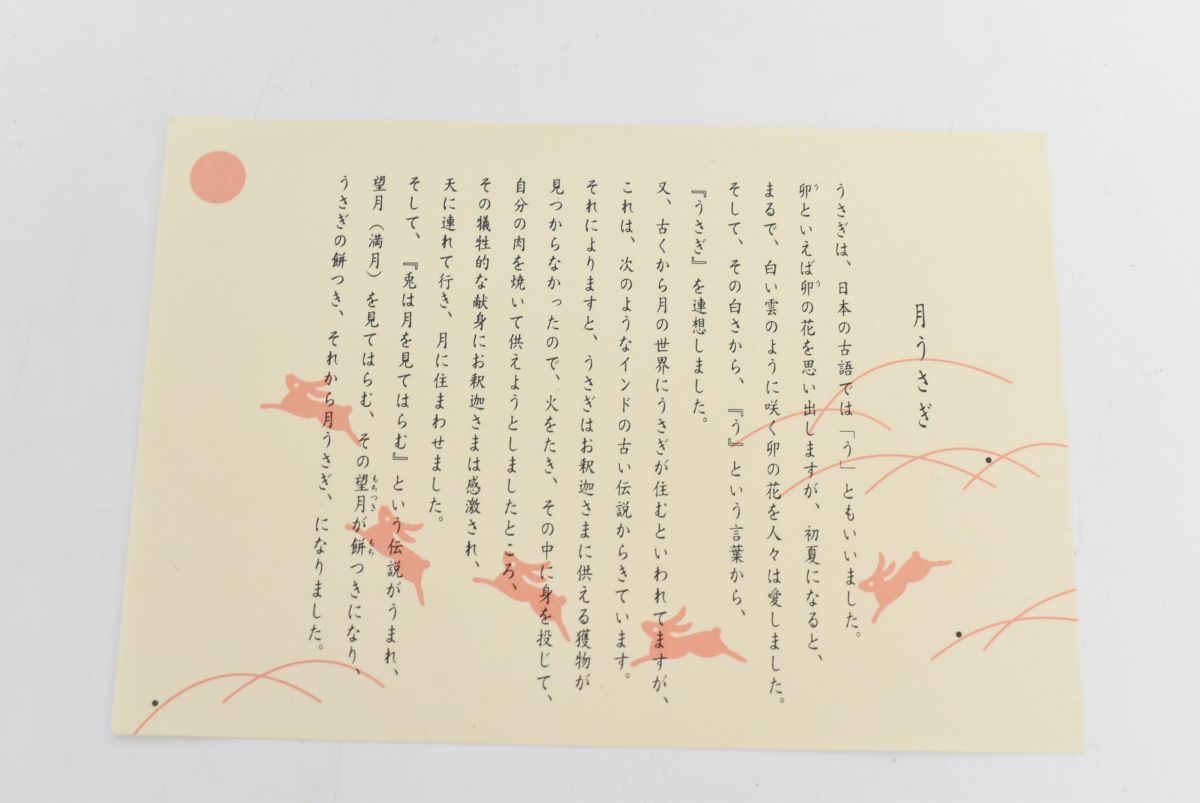 月うさぎ
うさぎは、日本の古語では「う」ともいいました。
卯といえば卯の花を思い出しますが、初夏になると、
まるで、白い雲のように咲く卯の花を人々は愛しました。
そして、その白さから、『う』という言葉から、
『うさぎ』を連想しました。
又、古くから月の世界にうさぎが住むといわれてますが、
これは、次のようなインドの古い伝説からきています。
それによりますと、うさぎはお釈迦さまに供える獲物が
見つからなかったので、火をたき、その中に身を投じて、
自分の肉を焼いて供えようとしましたところ、
その犠牲的な献身にお釈迦さまは感激され、
天に連れて行き、月に住まわせました。
そして、『兎は月を見てはらむ』という伝説がうまれ、
望月（満月）を見てはらむ、その望月が餅つきになり、
うさぎの餅つき、それから月うさぎ、になりました。